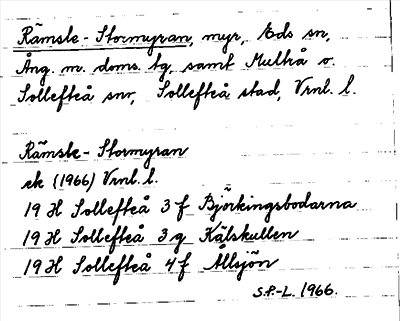 Rämsle-Stormyran, myr, Eds sn,
Ång. m. doms. tg, samt Multrå o.
Sollefteå snr, Sollefteå stad, Vrnl. l.
Rämsle-Stormyran
ek (1966) Vrnl. l.
19 H Sollefteå 3 f Björkingsbodarna
19 H Sollefteå 3 g Kälskullen
19 H Sollefteå 4 f Ållsjön
S.P.-L. 1966.